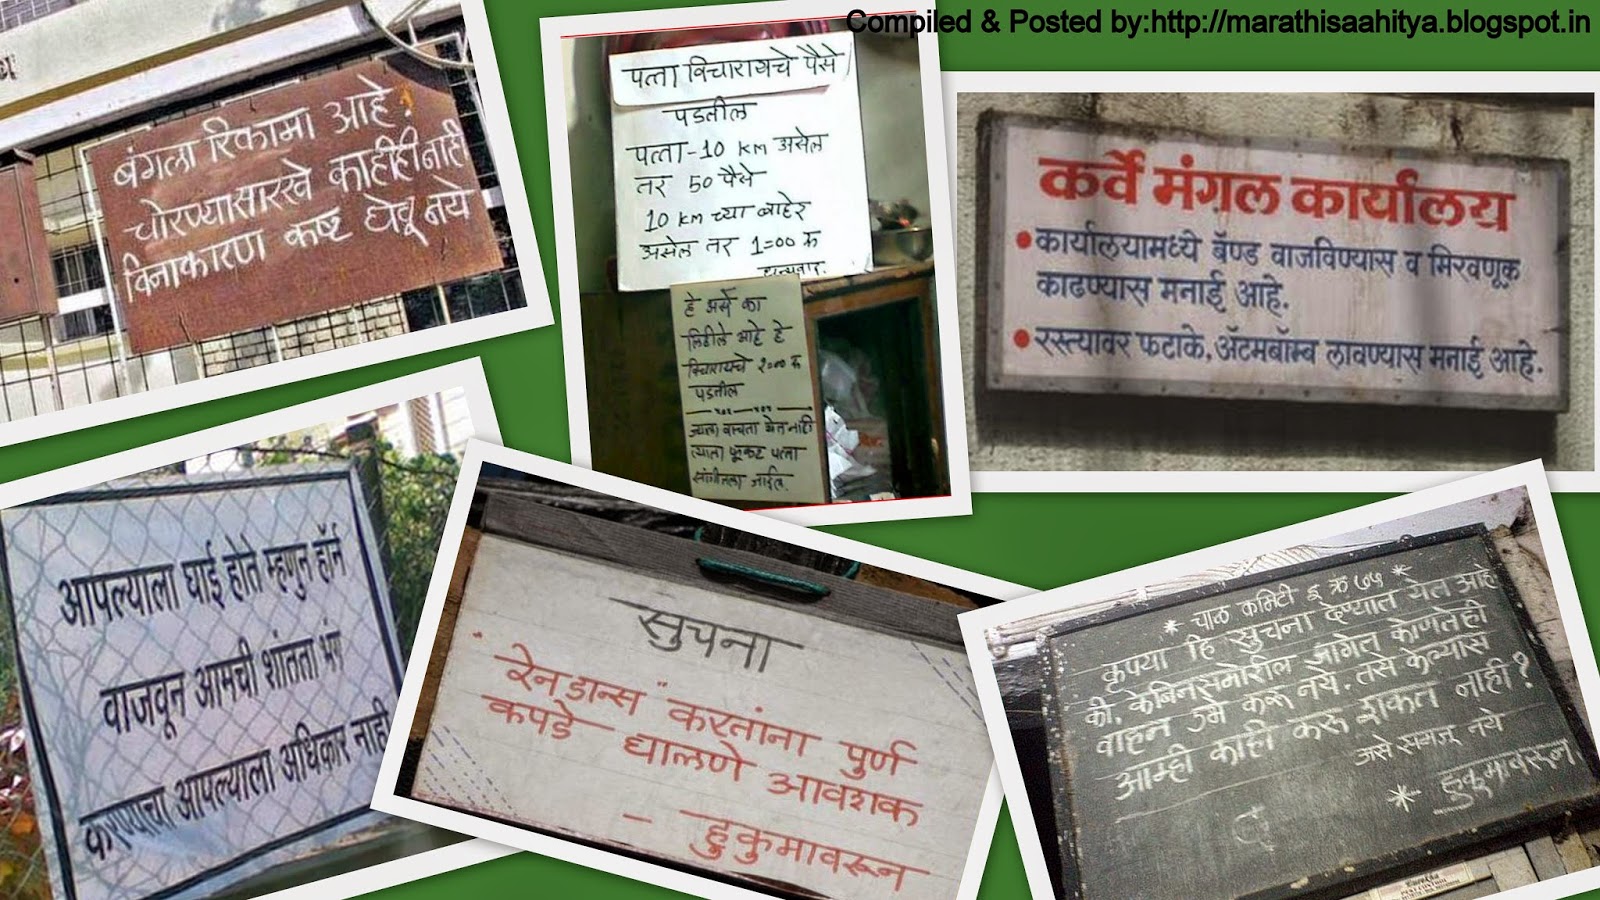 Compiled & Posted by:http://marathisaahitya.blogspot.in
बंगला रिकामा आहे.
चोरण्यासारखे काहीही नाही
विनाकारण कष्ट घेवू नये
पत्ता विचारायचे पैसे
पडतील
पत्ता-10 KM असेल
तर 50 पैसे
10 KM च्या बाहेर
असेल तर 1=00 रू
धन्यवाद.
हे असे का
लिहीले आहे हे
विचारायचे २=०० रू
पडतील
ज्याला वाचता येत नाही
त्याला फूकट पत्ता
सांगीतला जाईल.
कर्वे मंगल कार्यालय
• कार्यालयामध्ये बॅण्ड वाजविण्यास व मिरवणूक
काढण्यास मनाई आहे.
• रस्त्यावर फटाके, ॲटमबॉम्ब लावण्यास मनाई आहे.
आपल्याला घाई होते म्हणुन हॉर्न
वाजवून आमची शांतता भंग
करण्याचा आपल्याला अधिकार नाही
सुचना
"रेनडान्स" करतांना पुर्ण
कपडे घालणे आवशक
- हुकुमावरून
* चाळ कमिटी इ क्र ७५ *
कृपया हि सुचना देण्यात येत आहे
की, केबिनसमोरील जागेत कोणतेही
वाहन उभे करू नये. तसे केल्यास
आम्ही काही करू शकत नाही?
असे समजू नये
* हुकूमावरून.